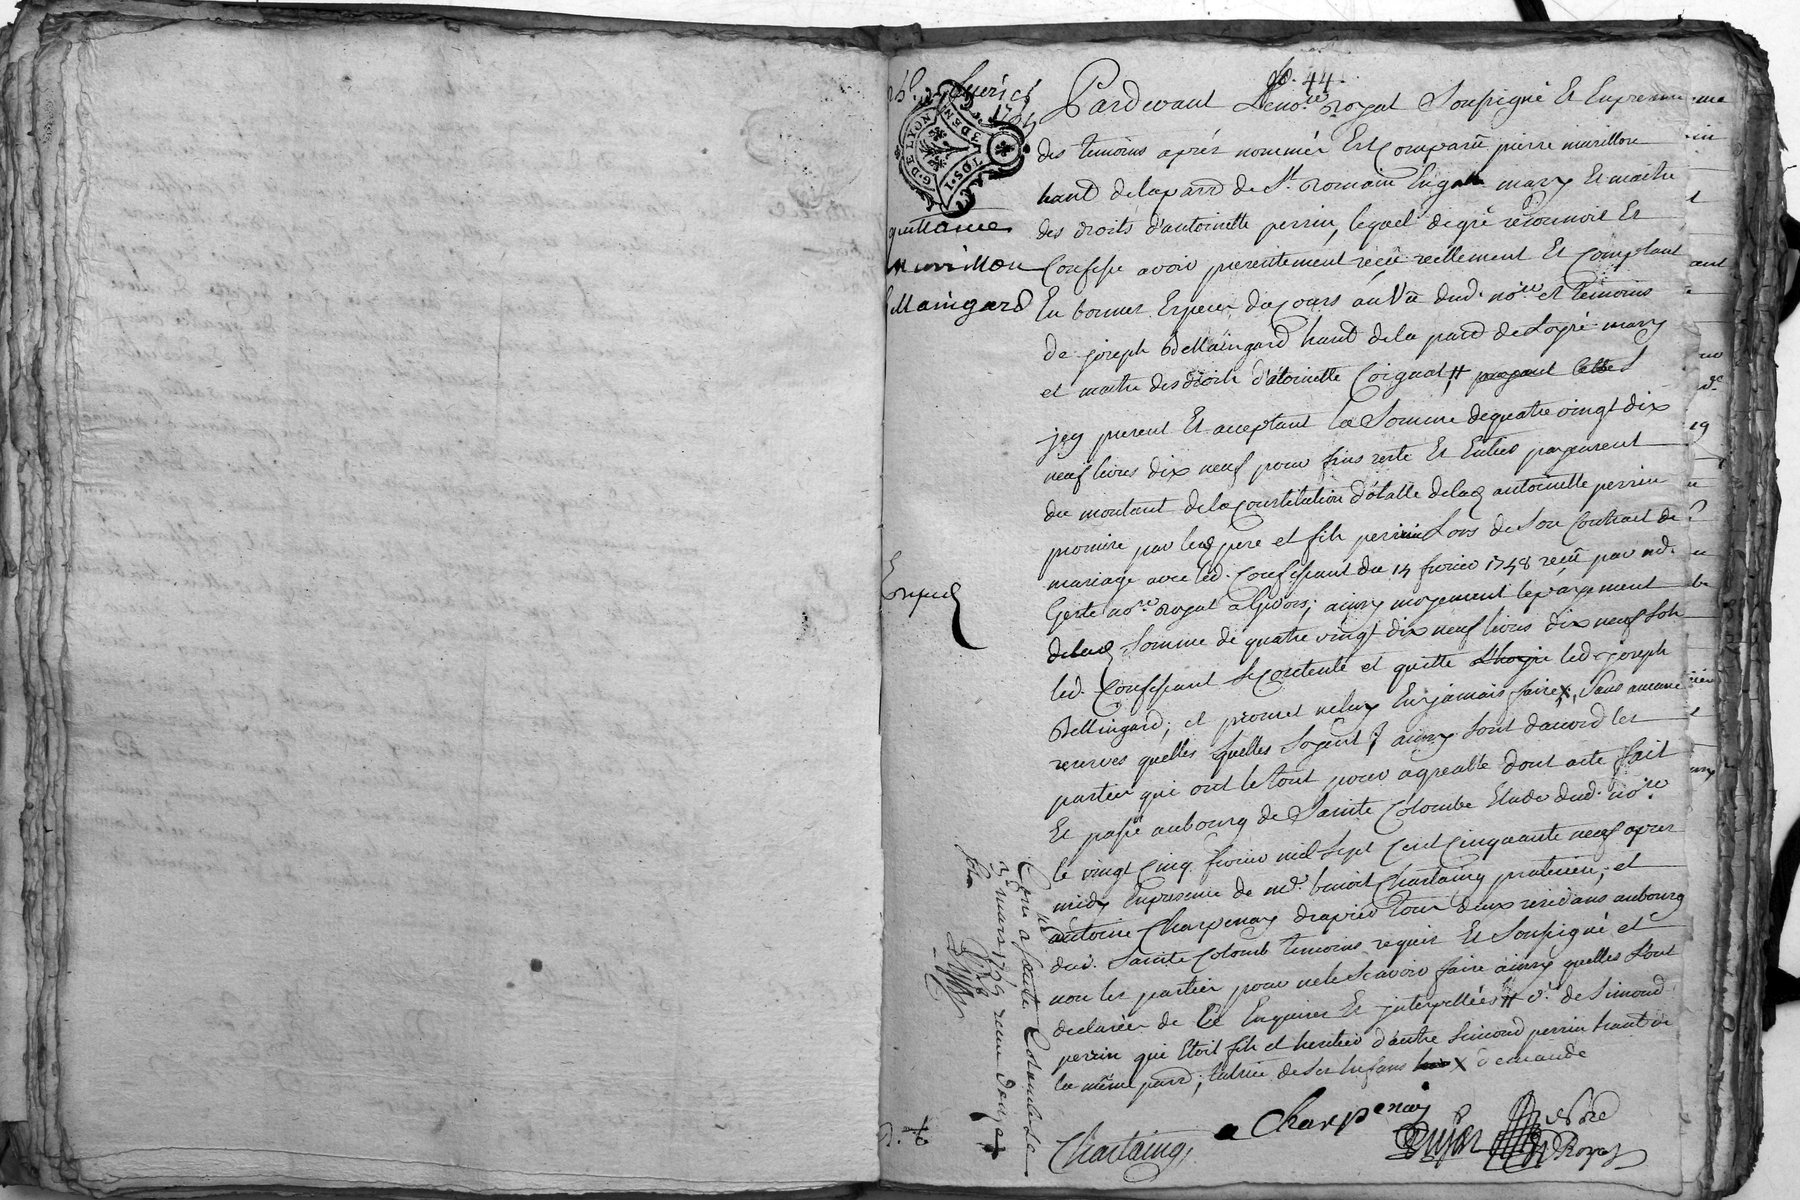 No. 44.
Pardevant Le no.re Royal Soussigné Et En presence
des temoins aprés nommés Est Comparu pierre murillon
hant delapard de St. Romain Engal mary Et maitre
des droits d'antoinette perrin, lequel degré reconnoit Et
Confesse avoir presentement reçû reellement Et Comptant
En bonnes Especes du Cours au Vû dud. no.re et temoins
de joseph Bellaingard hant dela pard de Loyre mary
et maitre des droits d'atoinette Coignat, #
jcy present Et acceptant la Somme dequatre vingt dix
neuf livres dix neuf pour fins reste Et Entier payement
du montant dela Constitution dotalle delad antoinette perrin
promise par les pere et fils perrin Lors de Son Contrait de
mariage avec led. Confessant du 14 fevrier 1748 reçû par md.
no.re Royal a Givors; ainsy moyement le payement
delad Somme de quatre vingt dix neuf livres dix neuf sols
led. Confessant Se Contente et quitte led. joseph
Bellingard; et promet neluy Enjamais faire X, Sans aucune
reserves quelles quelles Soyent; ainsy Sont daccord les
parties qui ont le tout pour agreable dont acte fait
Et passé aubourg de Sainte Colombe Etude dud. no.re
le vingt Cinq fevrier mil Sept Cent Cinquante neuf apres
midy En presence de md. benoit Chastaing praticien; et
antoine Charpenay drapier tous deux residans aubourg
dud. Sainte Colomb temoins requis Et Soussigné et
non les parties pour nele Scavoir faire ainsy quelles Sont
declarées de Ce Enquises Et jnterpellées # v.e de Simond
perrin qui Etoit fils et heritier d'autre Simond perrin hant de
la même pard; tutrice de Ses Enfans X demande
Chastaing,
a Charpenay
Royal
quittance
murillon
Bellaingard
Exped
Con.lé a Sainte Colombe Le
3 mars 1759 receu douze
sols